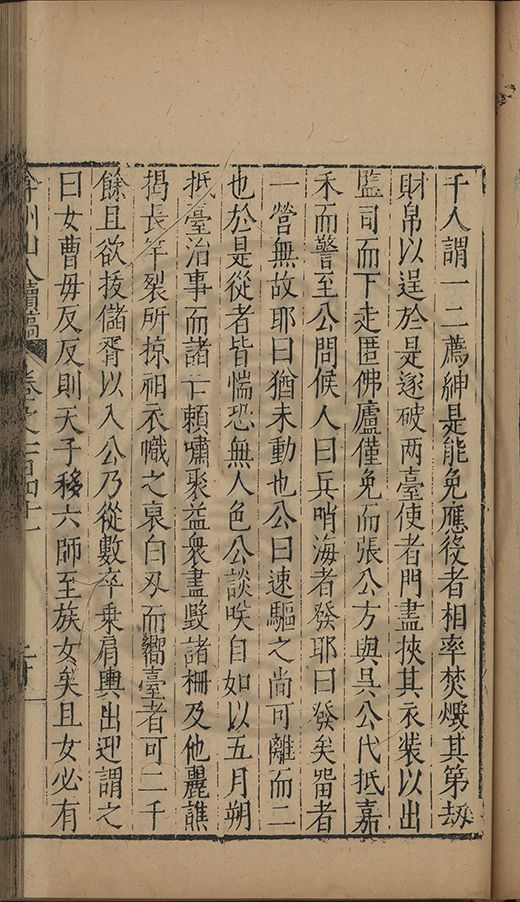 千人謂一二薦紳是能免應役者相率焚燬其第刼
財帛以逞於是遂破两臺使者門盡挾其衣裝以出
監司而下走匿佛廬僅免而張公方與吳公代抵嘉
禾而警至公問候人曰兵哨海者發耶曰發矣畱者
一營無故耶曰猶未動也公曰速驅之尚可離而二
也於是從者皆惴恐無人色公談咲自如以五月朔
抵臺治事而諸亡賴嘯聚益衆盡毀諸柵及他麗譙
揭長竿裂所掠袒衣幟之裹白刃而嚮臺者可二千
餘且欲拔儲胥以入公乃從數卒乗肩輿出迎謂之
曰女曹毋反反則天子移六師至族女矣且女必有
弇州山人續稿 卷之一百四十一